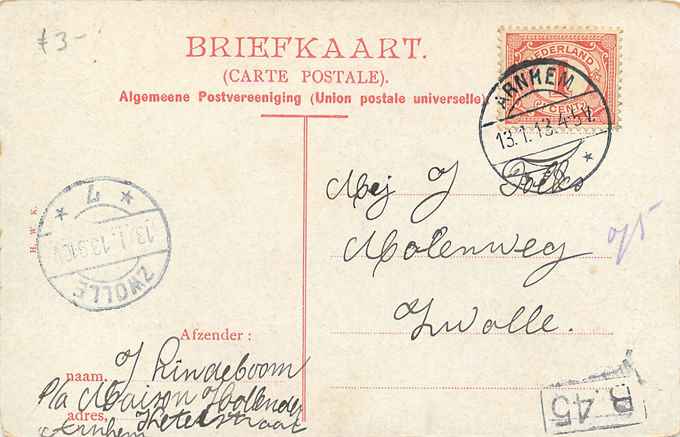 £3-
BRIEFKAART.
(CARTE POSTALE).
Algemeene Postvereeniging (Union postale universelle)
NEDERLAND
1
CENT
ARNHEM
13.1.13.4-5V.
Mej J
Molenweg
Zwolle.
o/5
H. W. K.
7
13.1.13.9-10V
ZWOLLE
Afzender:
naam. J Lindeboom
p/a Maison Hollende
adres, Ketelstraat
Arnhem
B.45